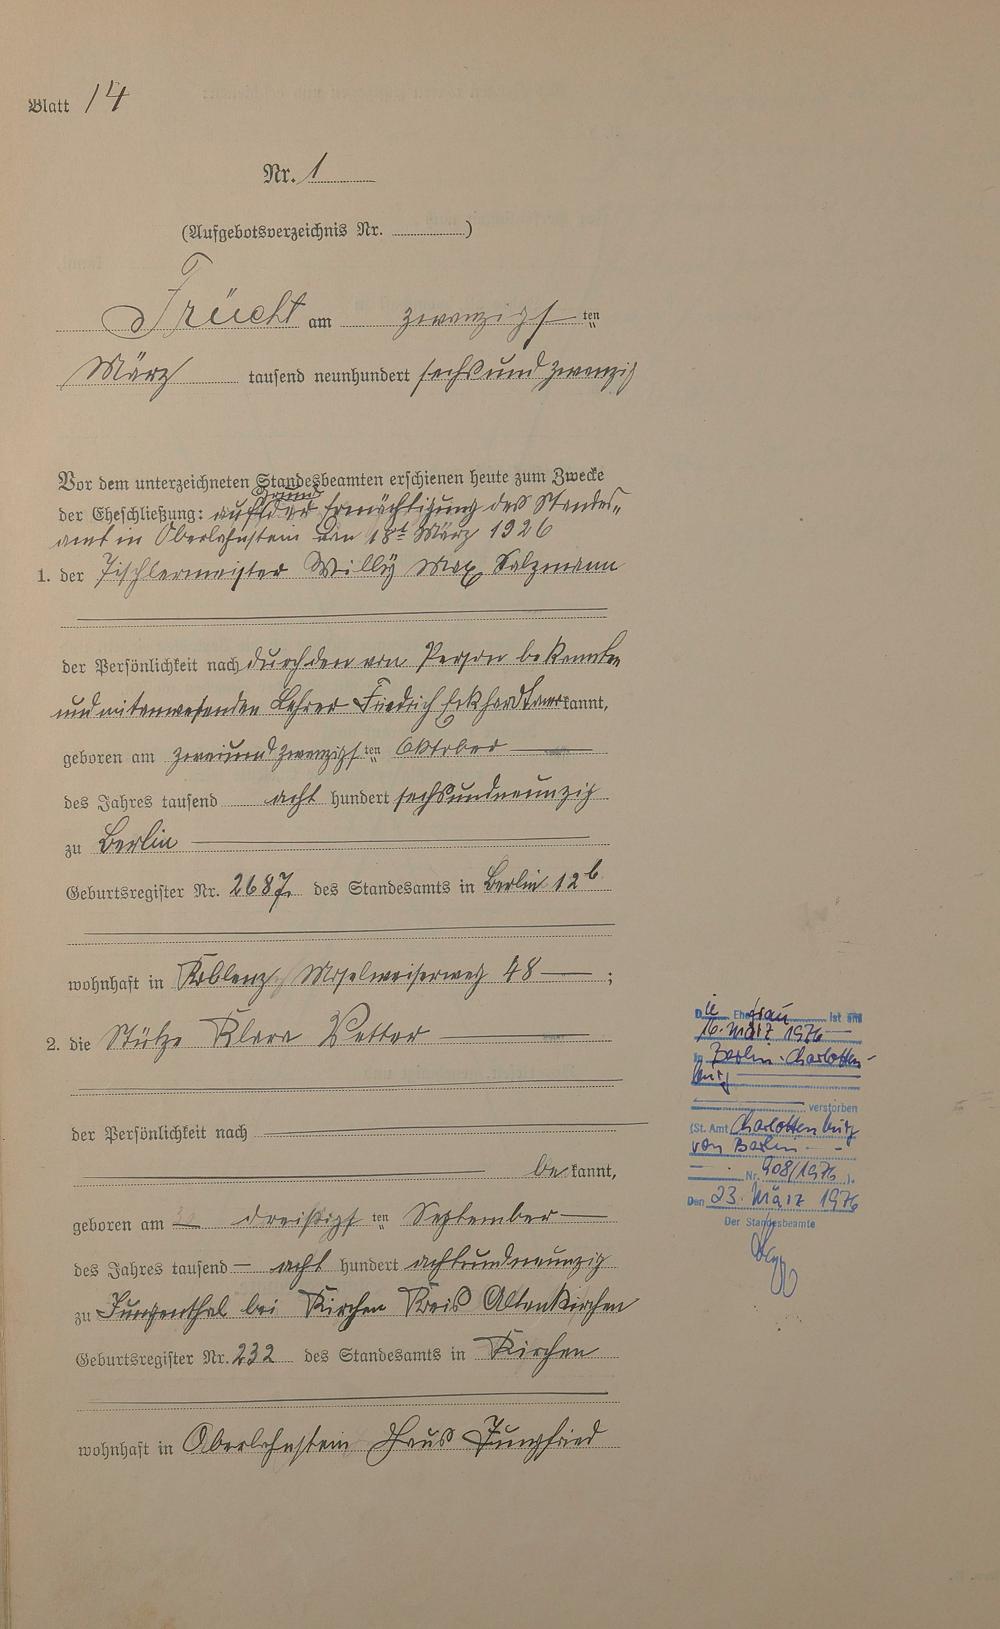 Blatt 14
Nr. 1
(Aufgebotsverzeichnis Nr. )
Frücht am zwanzigsten
März tausend neunhundert sechsundzwanzig
Vor dem unterzeichneten Standesbeamten erschienen heute zum Zwecke
der Eheschließung: auf Grund der Ermächtigung des Standes-
amt in Oberlahnstein vom 18t März 1926
1. der Tischlermeister Willy Max Salzmann
der Persönlichkeit nach durch den von Person bekannten
und mitanwesenden Lehrer Friedrich Eckhardt anerkannt,
geboren am zweiundzwanzigsten Oktober
des Jahres tausend acht hundert sechsundneunzig
zu Berlin
Geburtsregister Nr. 2687. des Standesamts in Berlin 12b
wohnhaft in Koblenz, Moselweiserweg 48 ;
2. die Stütze Klara Vetter
der Persönlichkeit nach
be kannt,
geboren am dreißigsten September
des Jahres tausend acht hundert achtundneunzig
zu Jungenthal bei Kirchen Kreis Altenkirchen
Geburtsregister Nr. 232 des Standesamts in Kirchen
wohnhaft in Oberlahnstein Haus Jungfried
Die Ehefrau ist am
16. März 1976
in Berlin-Charlotten-
burg
verstorben
(St. Amt Charlottenburg
von Berlin
Nr. 908/1976 ).
Den 23. März 1976
Der Standesbeamte